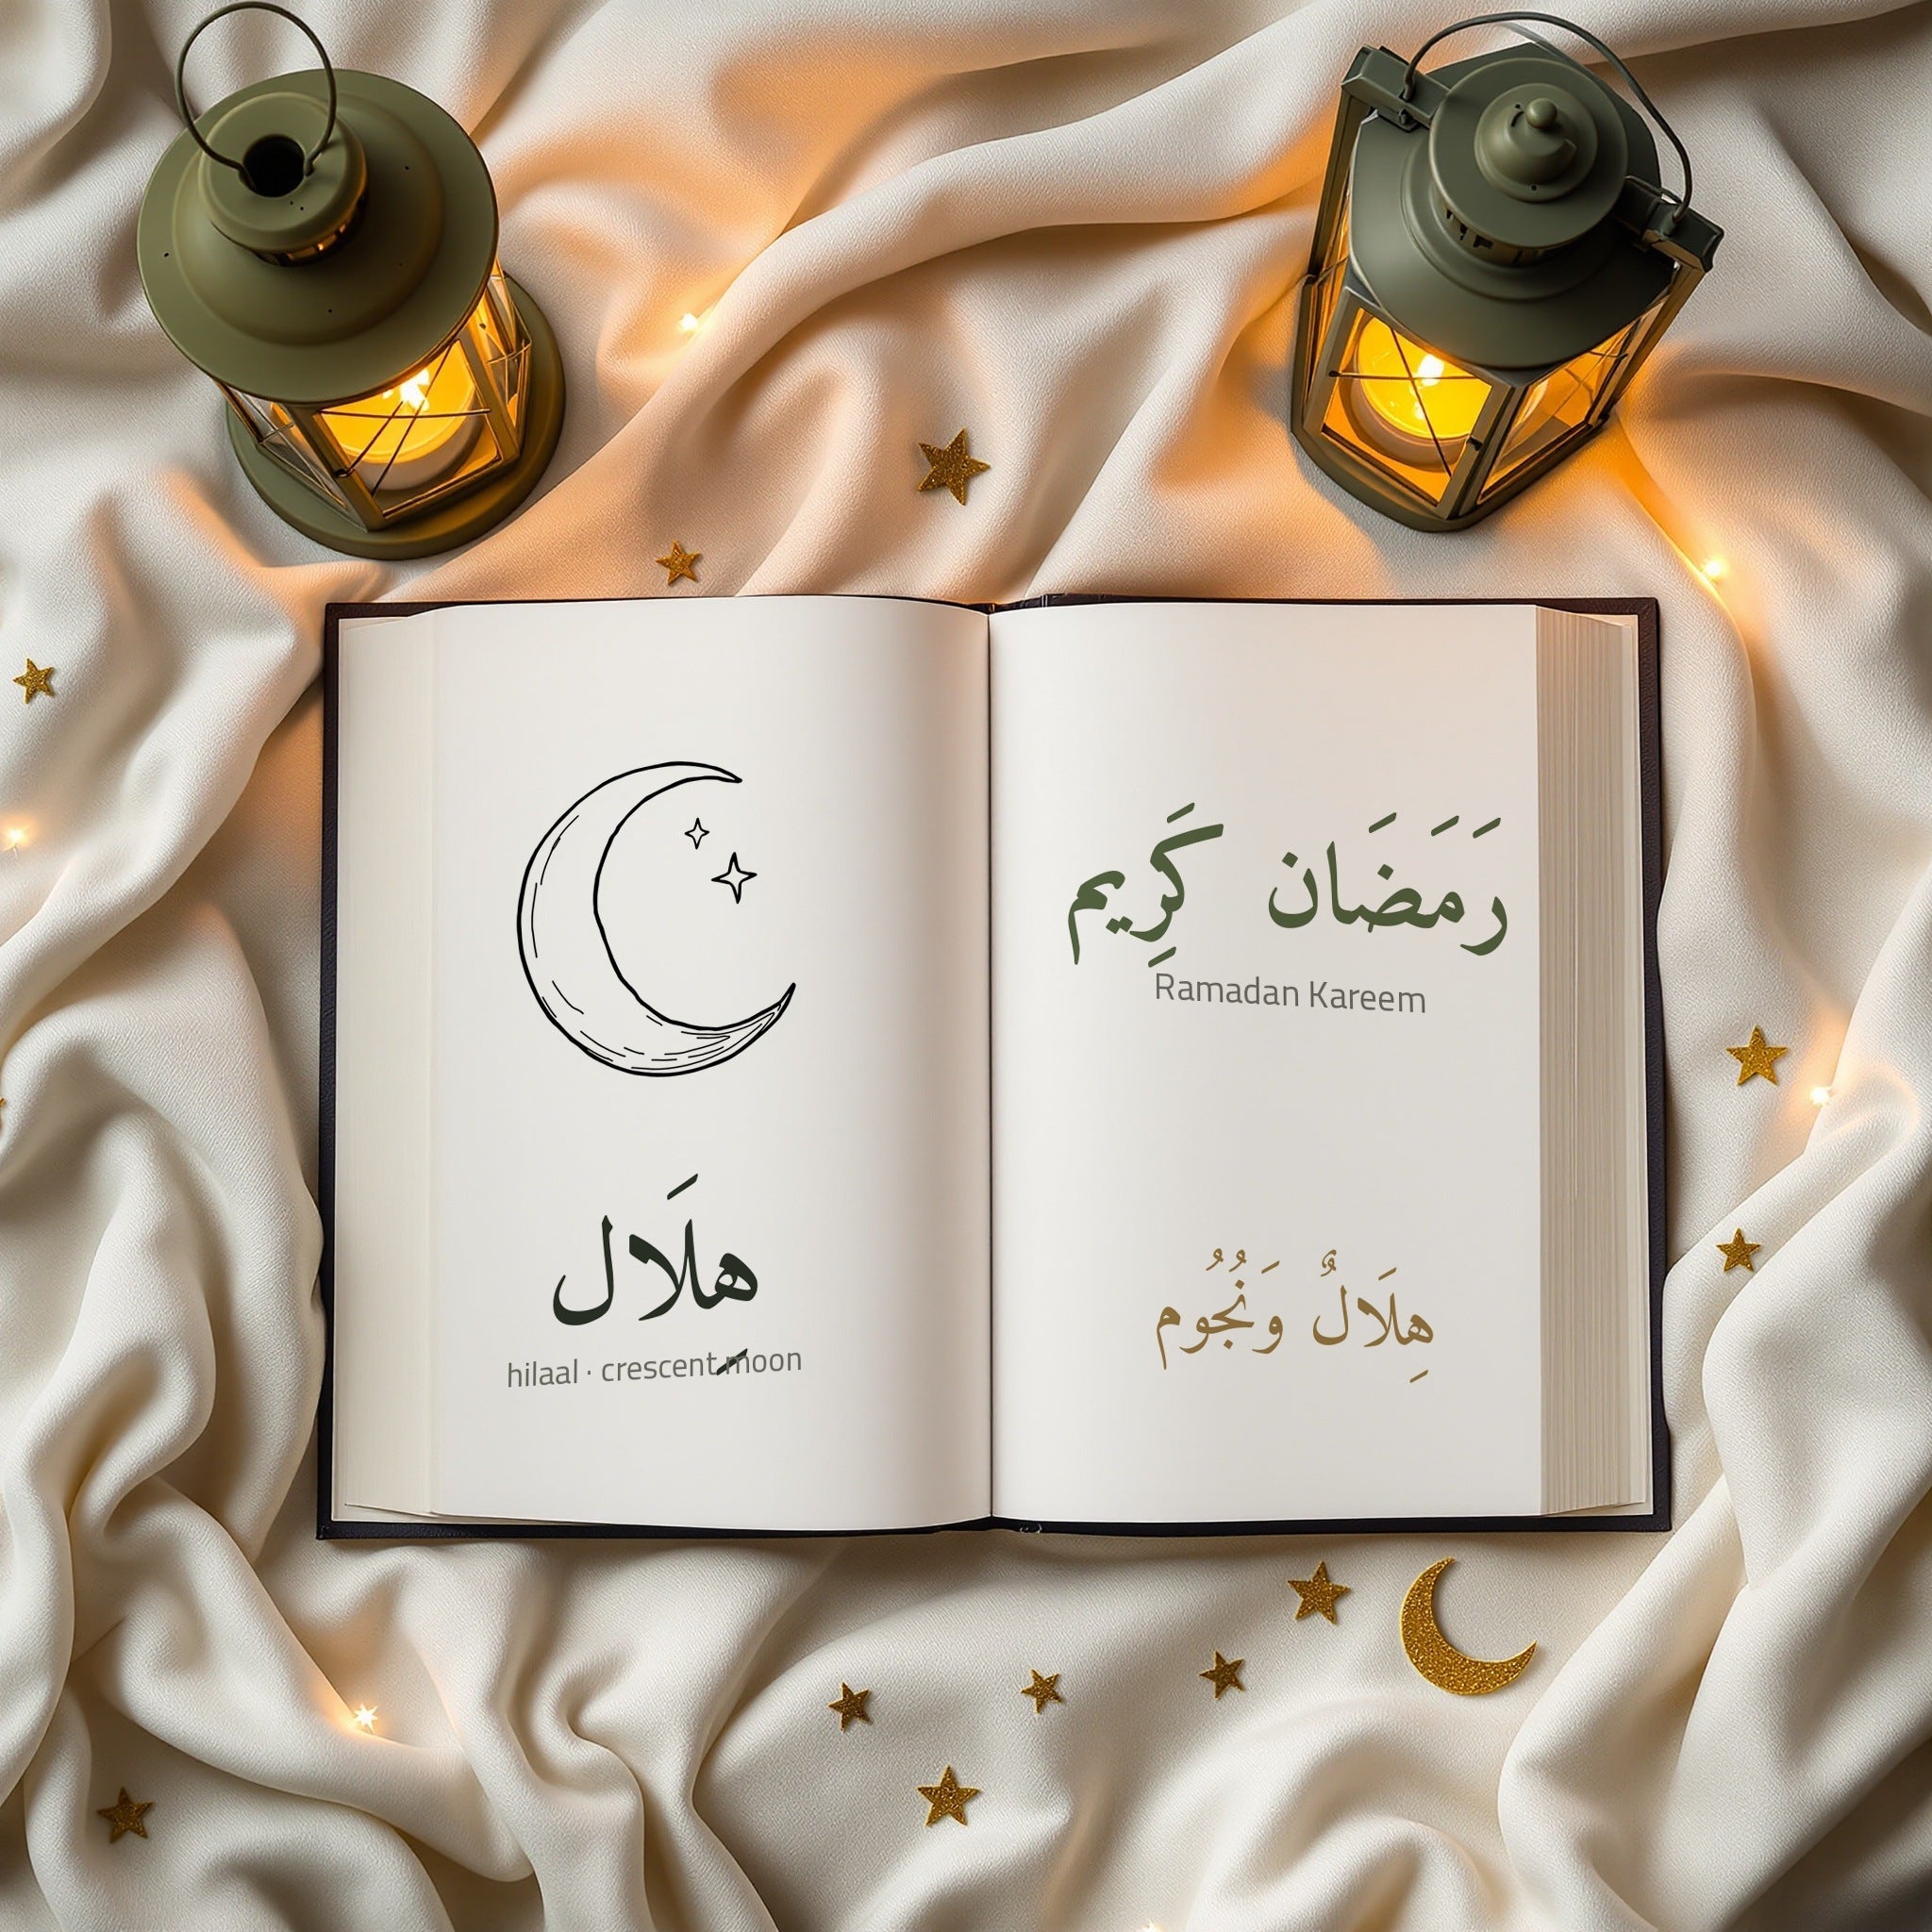 هِلَال
hilaal · crescent moon
رَمَضَان كَرِيم
Ramadan Kareem
هِلَالٌ وَنُجُوم